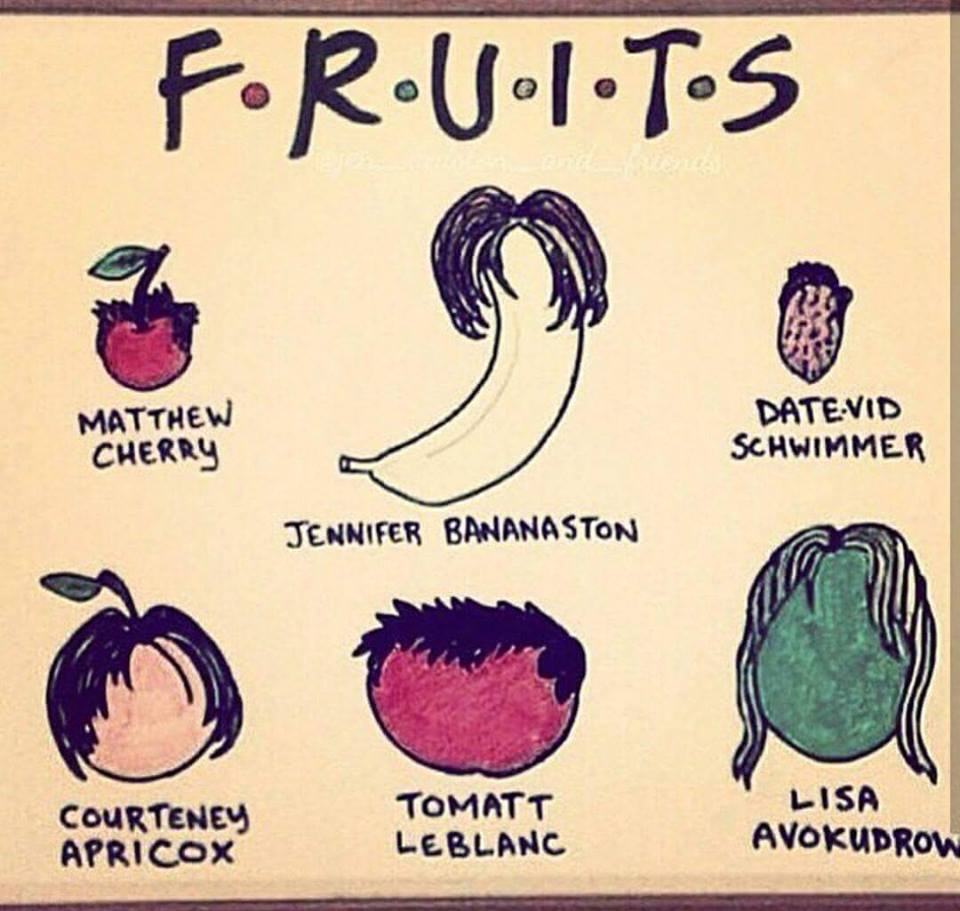 F.R.U.I.T.S
MATTHEW
CHERRY
JENNIFER BANANASTON
DATE-VID
SCHWIMMER
COURTENEY
APRICOX
TOMATT
LEBLANC
LISA
AVOKUDROW